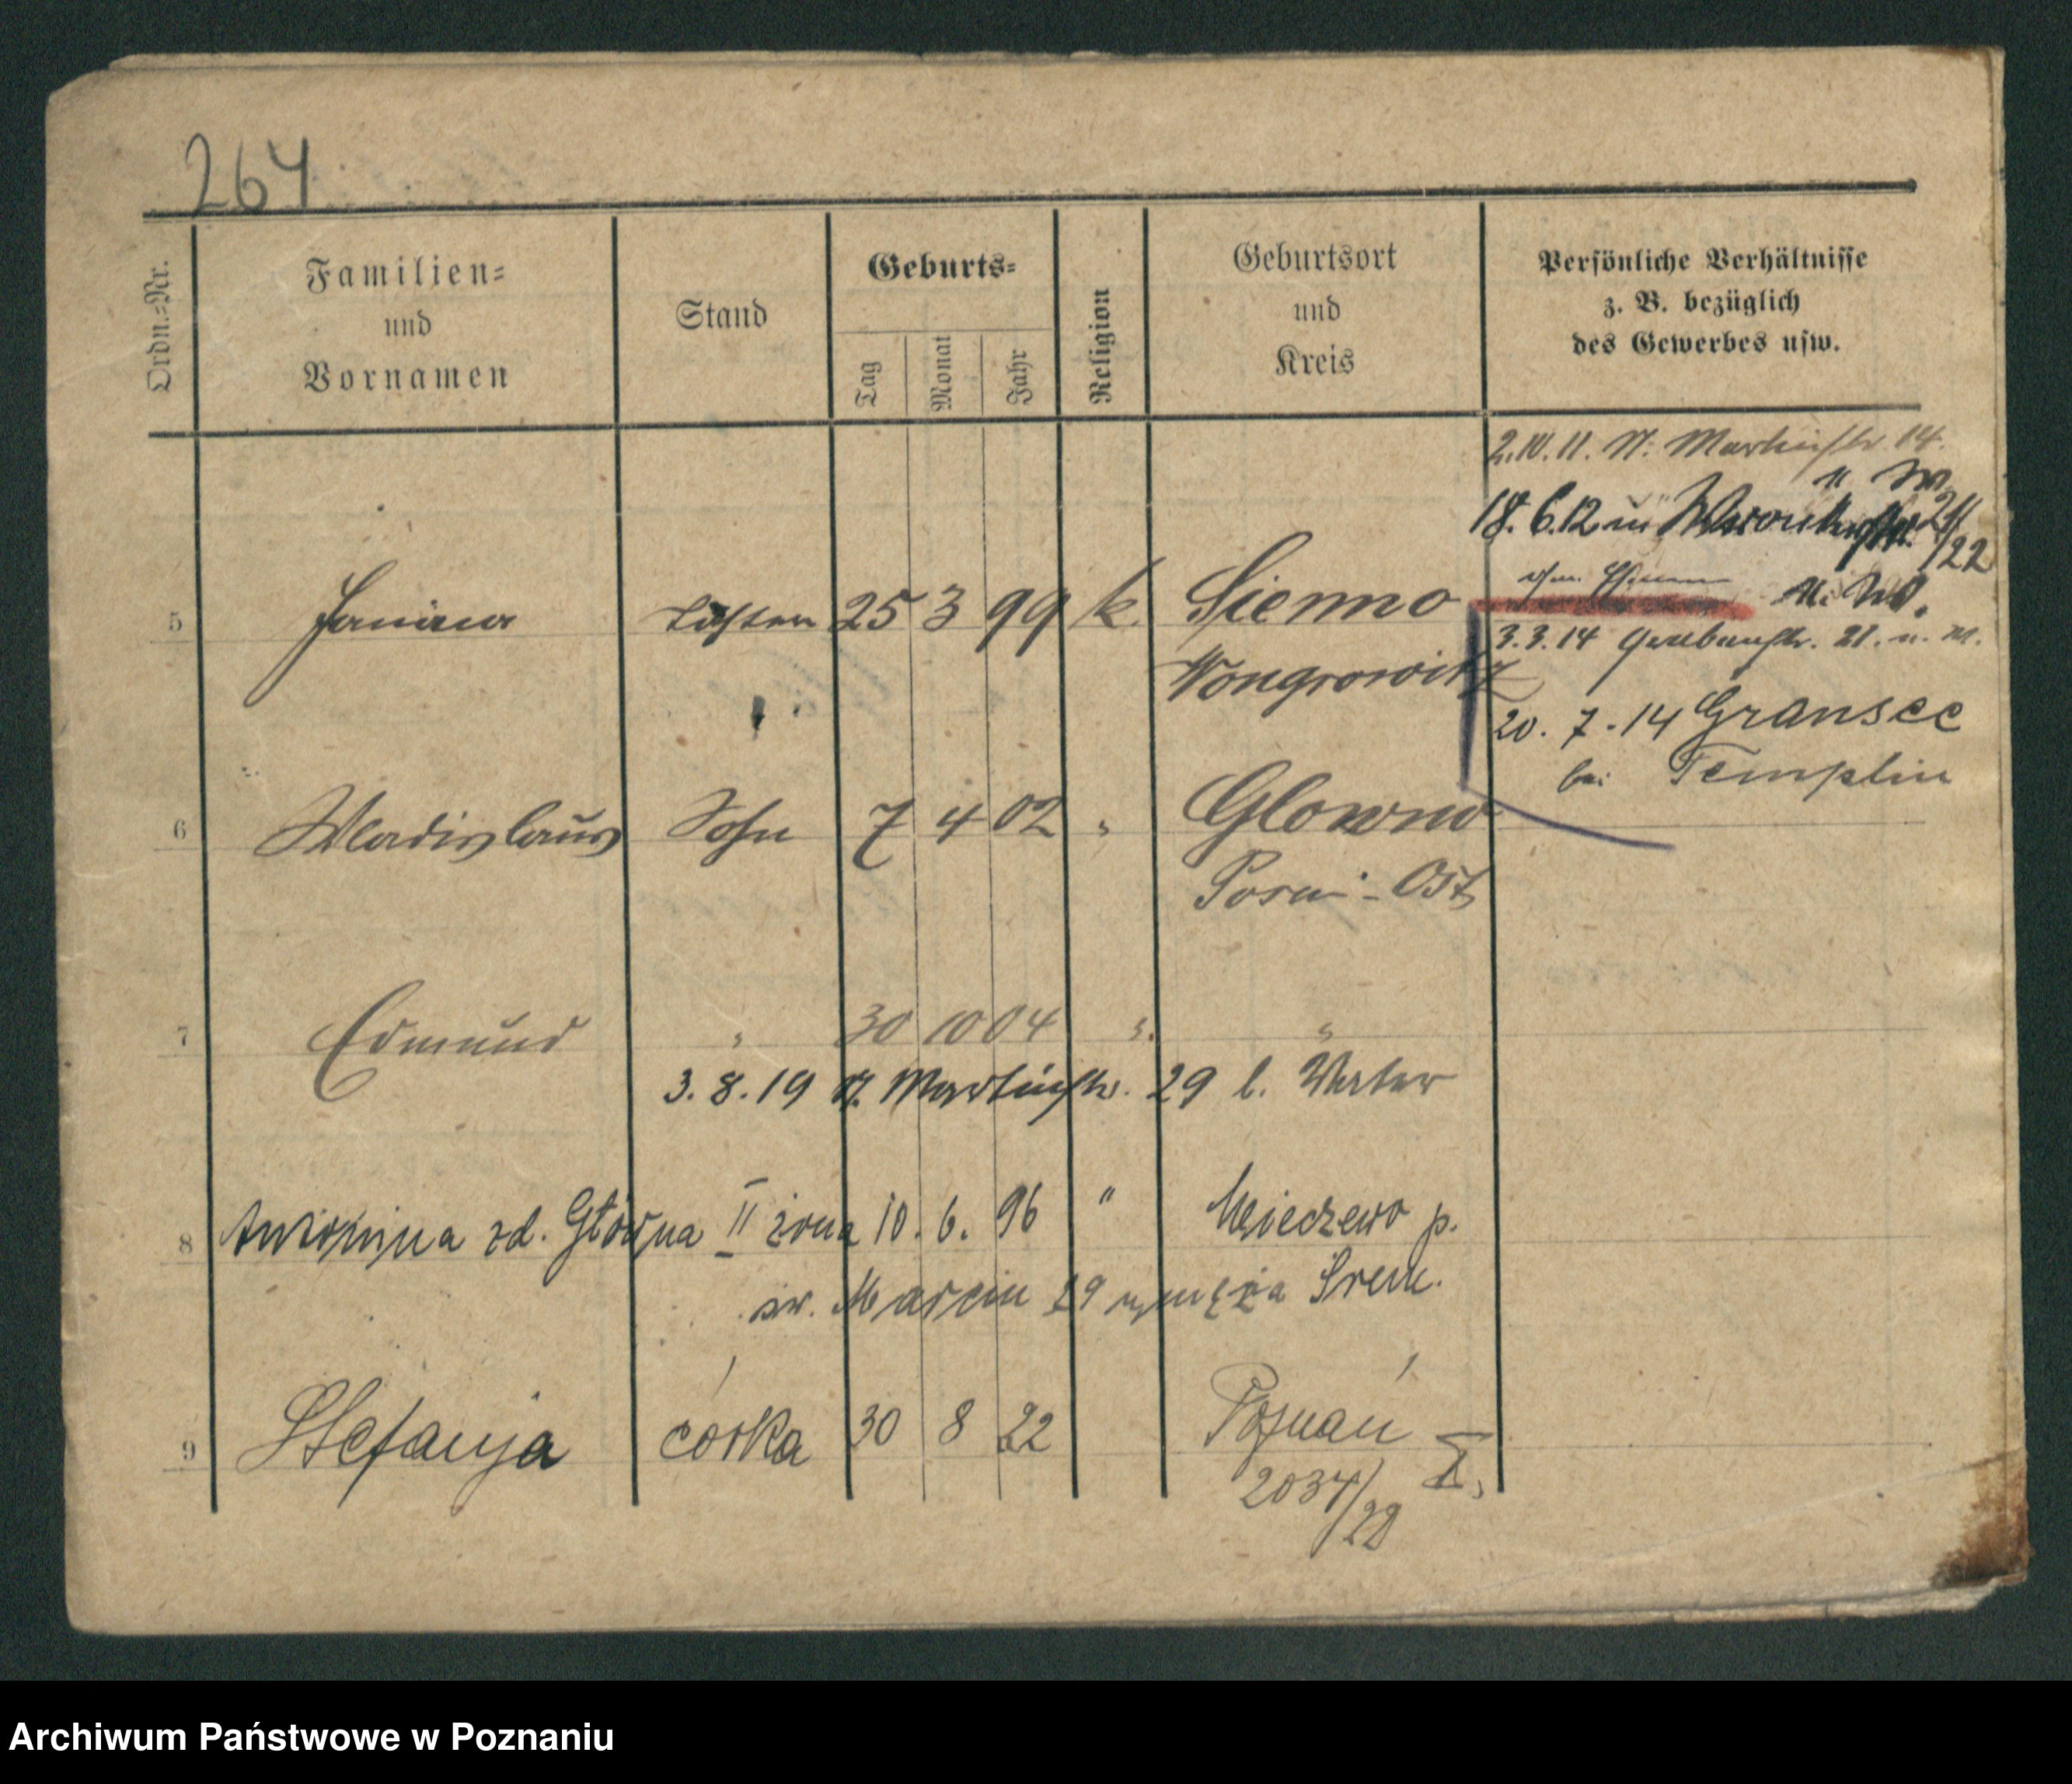 264
Ordn.-Nr.
Familien-
und
Vornamen
Stand
Geburts-
Tag
Monat
Jahr
Religion
Geburtsort
und
Kreis
Persönliche Verhältnisse
z. B. bezüglich
des Gewerbes usw.
2.10.11. N. Martinstr. 14.
18. 6.12 in 21/22
5 Janina Tochter 25 3 99 k. Sienno
Wongrowitz
3.3.14 Grabenstr. 21. u. M.
20. 7. 14 Gransee
bei Templin
6 Wladislaus Sohn 7 4 02 " Glowno
Posen-Ost
7 Edmund " 30 10 04 " "
3. 8. 19 N. Martinstr. 29 b. Vater
8 Antonina zd. Głowna II żona 10. 6. 96 " Mieczewo p.
Srem.
św. Marcin 29 u męża
9 Stefanja córka 30 8 22 Poznań
2034/22 I.
Archiwum Państwowe w Poznaniu